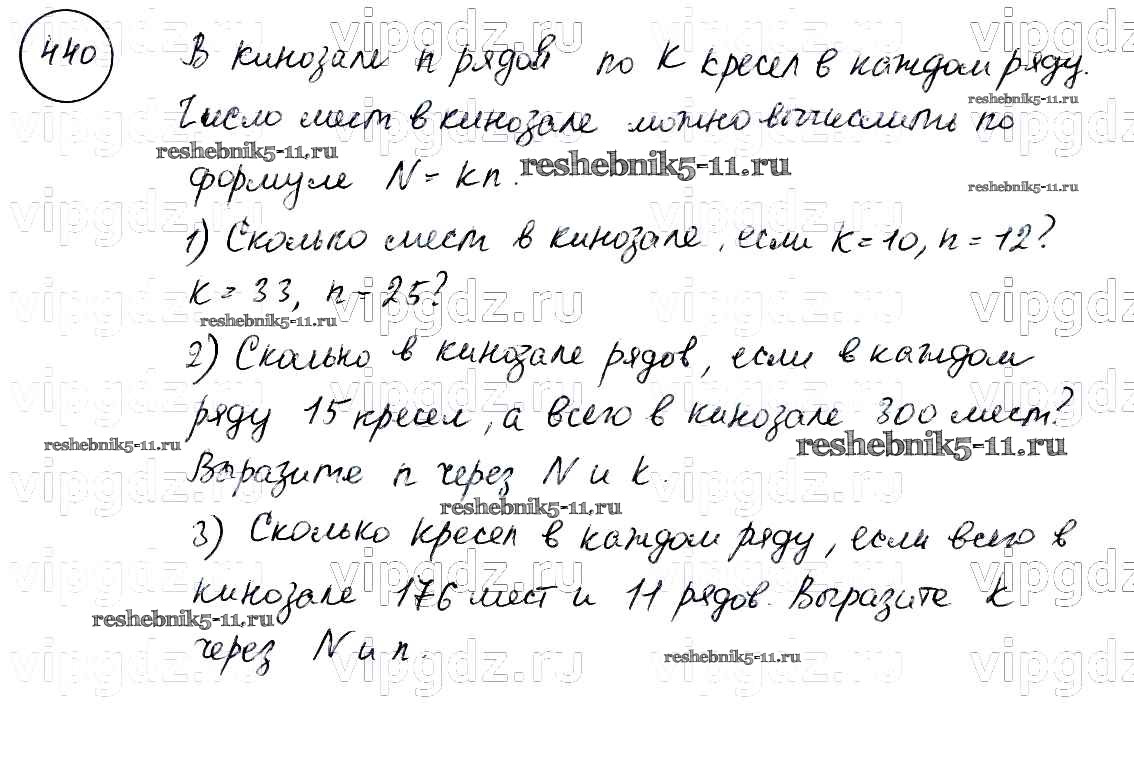 440
В кинозале n рядов по k кресел в каждом ряду.
Число мест в кинозале можно вычислить по
формуле N = kn.
1) Сколько мест в кинозале, если k = 10, n = 12?
k = 33, n = 25?
2) Сколько в кинозале рядов, если в каждом
ряду 15 кресел, а всего в кинозале 300 мест?
Выразите n через N и k.
3) Сколько кресел в каждом ряду, если всего в
кинозале 176 мест и 11 рядов. Выразите k
через N и n.
vipgdz.ru
reshebnik5-11.ru